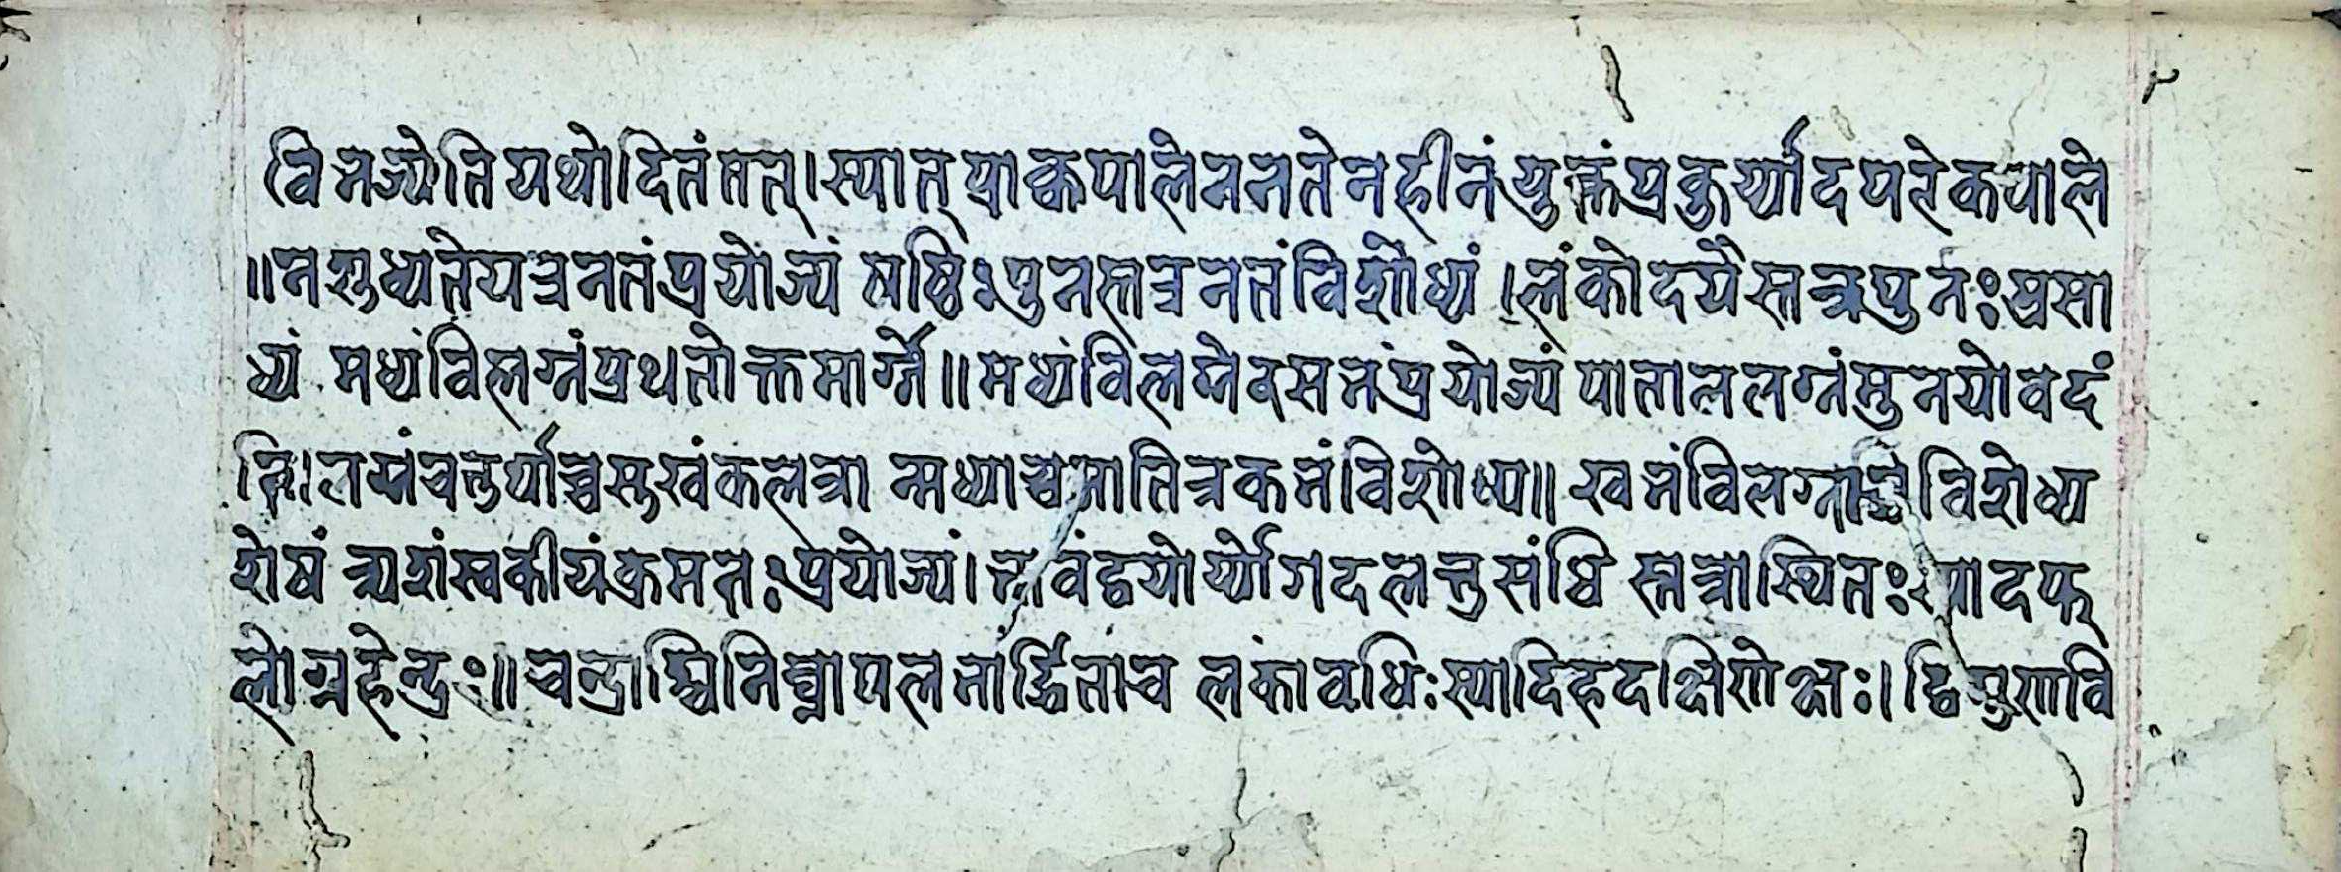 विभज्येति यथोदितं तत्। स्यात् प्राक्कपाले न नतेन हीनं युक्तं प्रकुर्य्यादपरे कपाले
॥न शुध्यते यत्र नतं प्रयोज्यं षष्ठिः पुनस्तत्र नतं विशोध्यं। लंकोदयैस्तत्र पुनः प्रसा
ध्यं मध्यं विलग्नं प्रथनोक्तमार्ग्गे॥ मध्यं विलग्नेवसभं प्रयोज्यं पाताललग्नं मुनयो वदं
ति। लग्नं चतुर्थाच्चसुखं कलत्रा न्मध्याच्च भातित्रकभं विशोध्य॥ खभं विलग्ना विशोध्य
शेषं त्र्यशं स्वकीयं क्रमतः प्रयोज्यं। भावं द्वयोर्य्योगदलन्तु संधि स्तत्रास्थितः स्यादफ
लो ग्रहेन्द्रः॥ चन्द्राश्विनिघ्ना पलभार्द्धिताच लंकावधिः स्यादिह दक्षिणोक्षः। द्विघ्नगुणावि